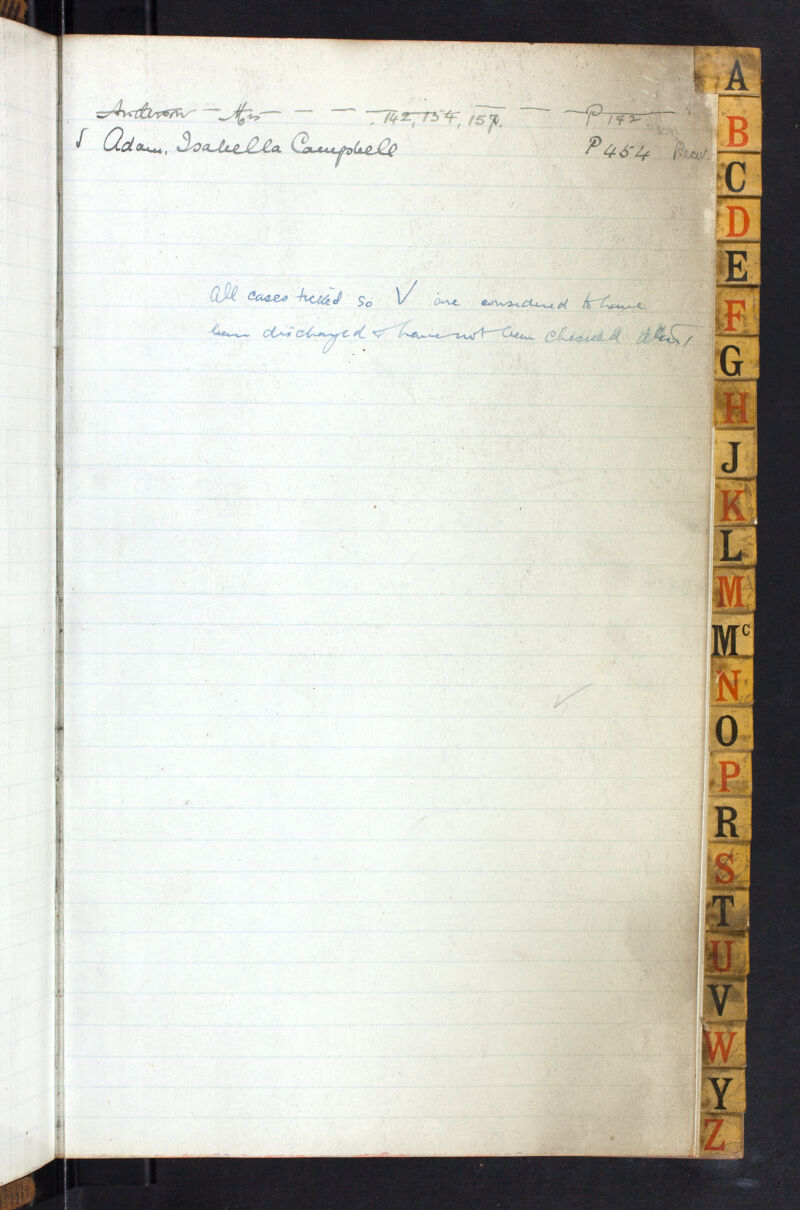 Anderson - Mrs - - - 142, 154, 157. - - P 142
√ Adam, Isabella Campbell P 454
All cases ticked so √ are considered to have
been discharged & have not been checked
A
B
C
D
E
F
G
H
J
K
L
M
Mc
N
O
P
R
S
T
U
V
W
Y
Z